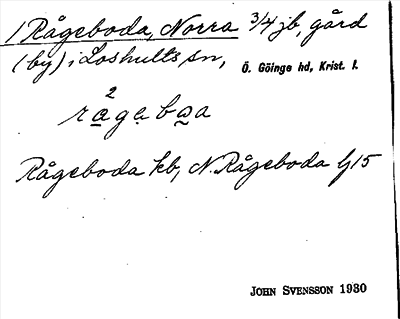 1 Rågeboda, Norra 3/4 jb, gård
(by) i Loshults sn, Ö. Göinge hd, Krist. l.
2
rågabꝏa
Rågeboda kb, N. Rågeboda lj 15
JOHN SVENSSON 1930